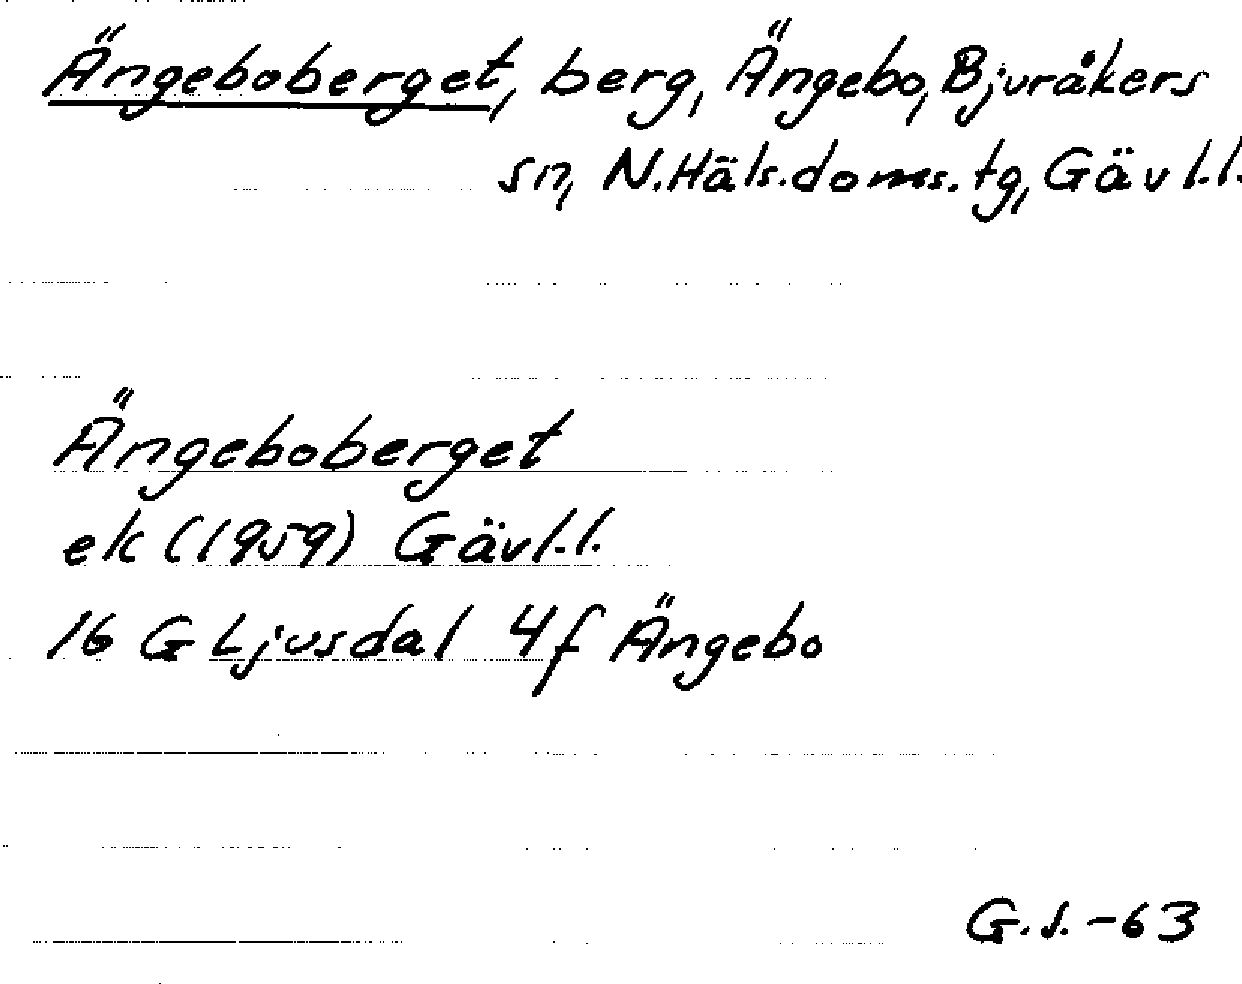 Ängeboberget, berg, Ängebo, Bjuråkers
sn, N.Häls.doms.tg, Gävl.l.
Ängeboberget
ek (1959) Gävl.l.
16 G Ljusdal 4f Ängebo
G.S.-63